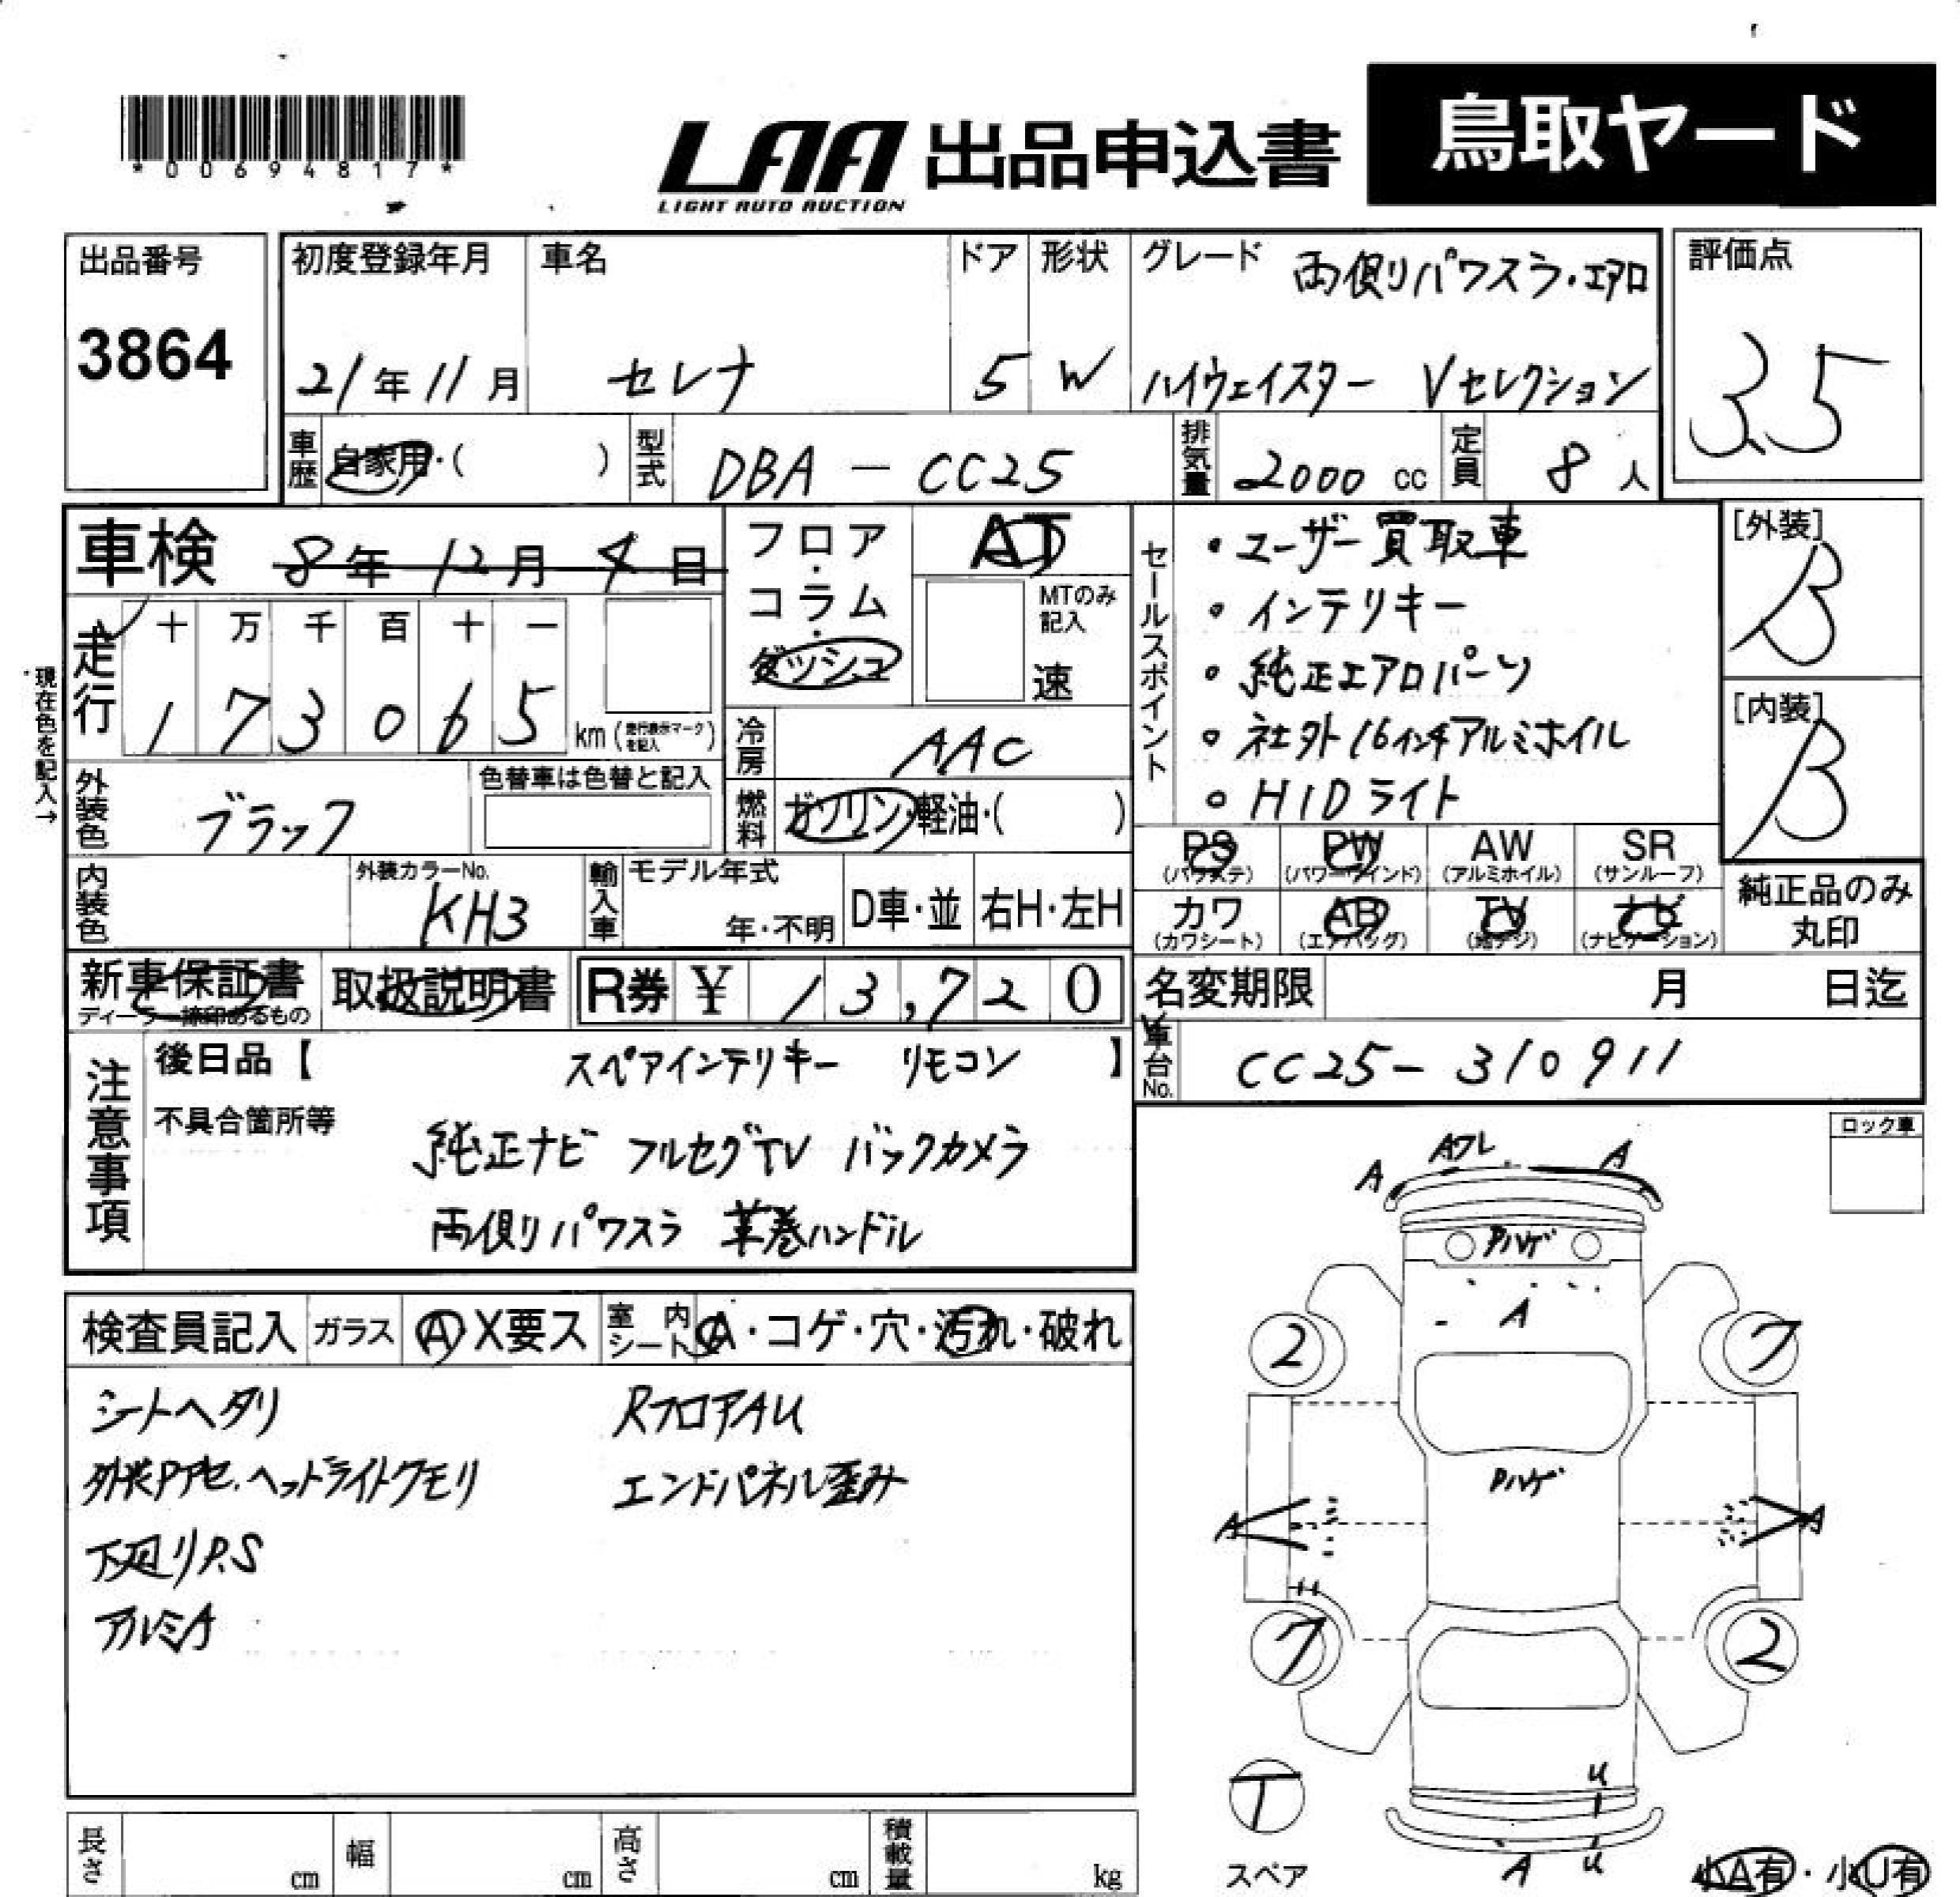 *00694817*
LAA 出品申込書 鳥取ヤード
LIGHT AUTO AUCTION
出品番号 3864
初度登録年月 21年11月
車名 セレナ
ドア 5
形状 W
グレード 両側パワスラ・エアロ
ハイウェイスター Vセレクション
評価点 3.5
車歴 自家用・( )
型式 DBA-CC25
排気量 2000 cc
定員 8人
車検 8年12月4日
走行 十 万 千 百 十 一
173065 km (走行表示マークを記入)
現在色を記入→
フロア・コラム・ダッシュ
AT
MTのみ記入
速
冷房 AAC
燃料 ガソリン・軽油・( )
セールスポイント
・ユーザー買取車
・インテリキー
・純正エアロパーツ
・社外16インチアルミホイル
・HIDライト
[外装] B
[内装] B
外装色 ブラック
色替車は色替と記入
内装色
外装カラーNo. KH3
輸入車 モデル年式 年・不明
D車・並 右H・左H
PS (パワステ)
PW (パワーウインド)
AW (アルミホイル)
SR (サンルーフ)
カワ (カワシート)
AB (エアバッグ)
TV (地デジ)
ナビ (ナビゲーション)
純正品のみ丸印
新車保証書 ディーラー捺印あるもの
取扱説明書
R券 ¥ 13,720
名変期限 月 日迄
車台No. CC25-310911
注意事項
後日品【 スペアインテリキー リモコン 】
不具合箇所等
純正ナビ フルセグTV バックカメラ
両側パワスラ 革巻ハンドル
ロック車
検査員記入 ガラス A X要ス 室内シート A・コゲ・穴・汚れ・破れ
シートヘタリ RフロアAU
外装Pアセ.ヘッドライトクモリ エンドパネル歪み
下廻りP.S
アルミA
Aワレ A
A
Pハゲ
A
2 7
Pハゲ
A A
7 2
U
T
スペア
A U
小A有・小U有
長さ cm 幅 cm 高さ cm 積載量 kg